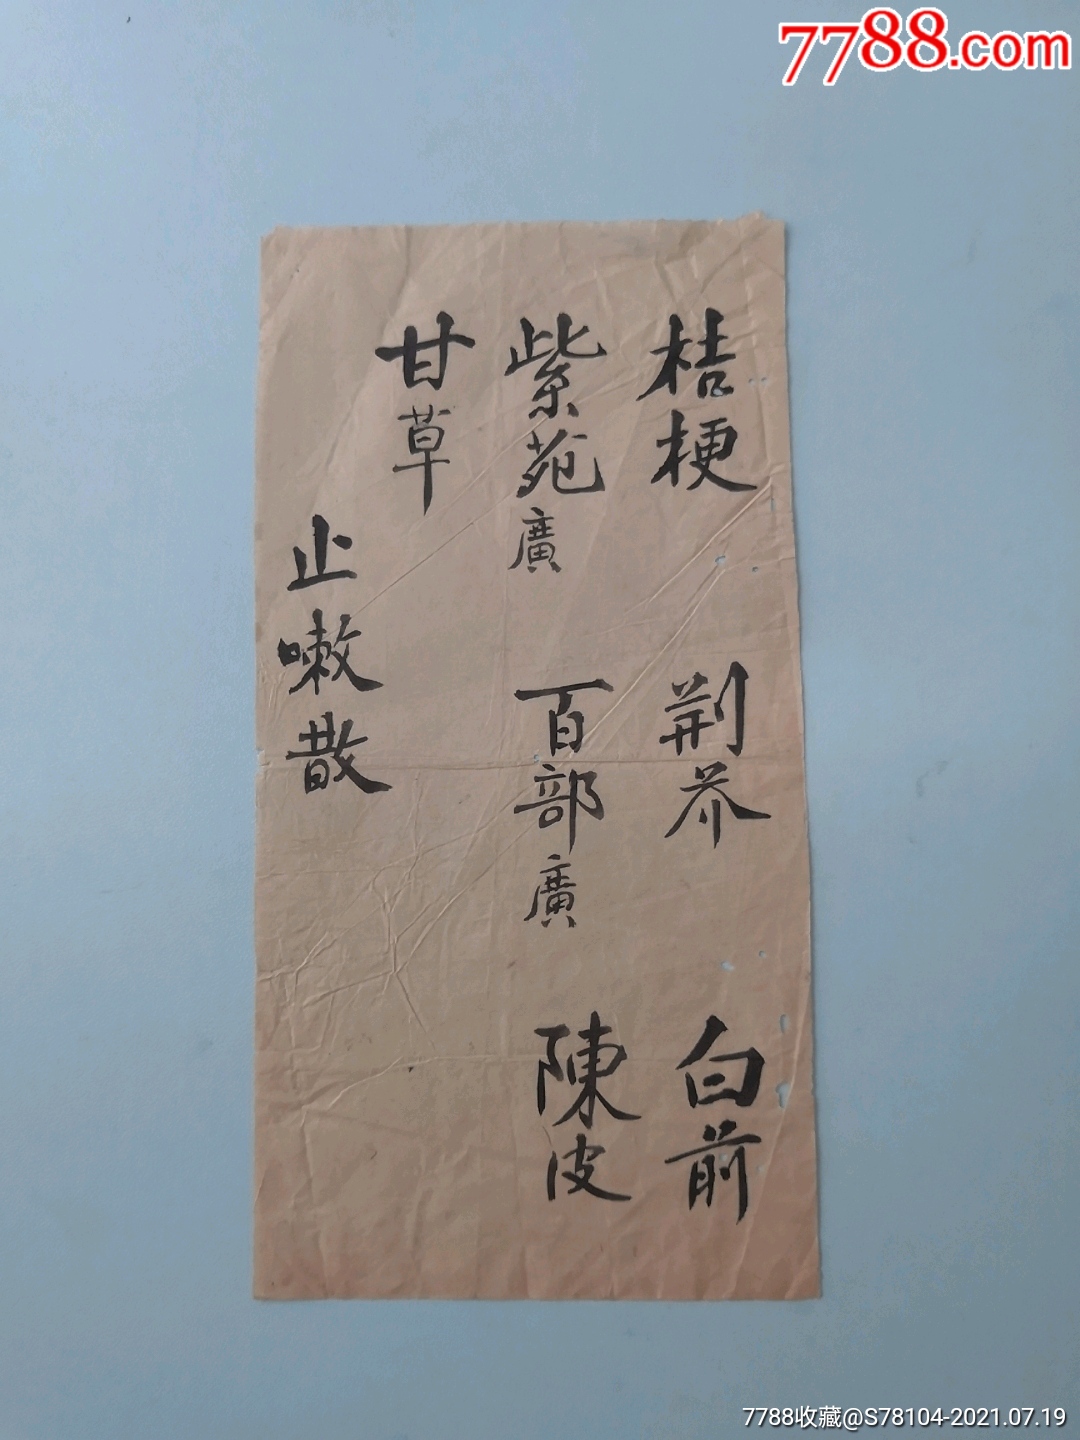 7788.com
桔梗 荆芥 白前
紫苑廣 百部廣 陳皮
甘草
止嗽散
7788收藏@S78104-2021.07.19